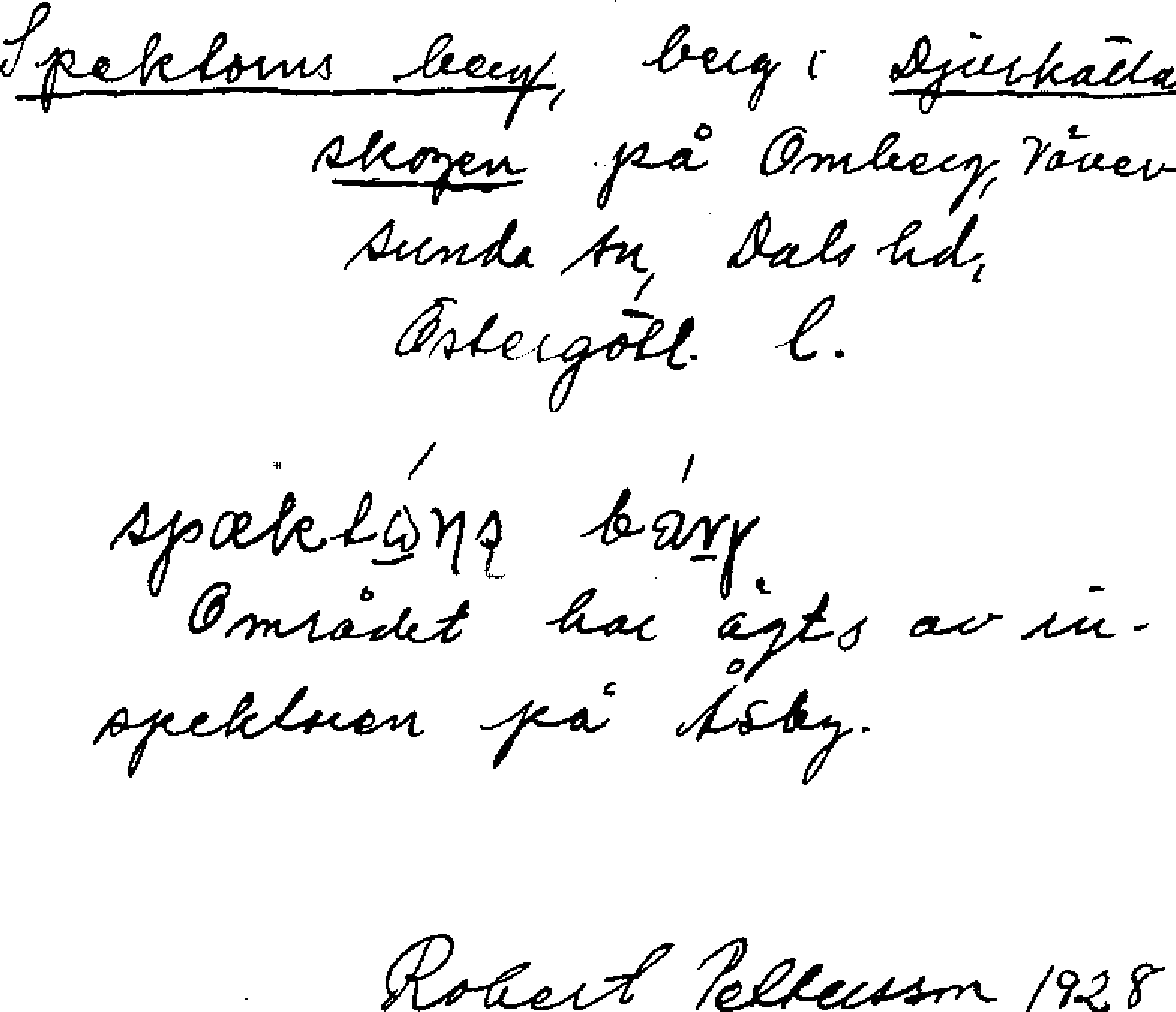 Spektorns berg, berg i Djurkälla
skogen på Omberg, Väver
sunda sn, Dals hd,
Östergötl. l.
spæktώ̲ņș bárγ
Området har ägts av in-
spektoren på Åsby.
Robert Pettersson 1928